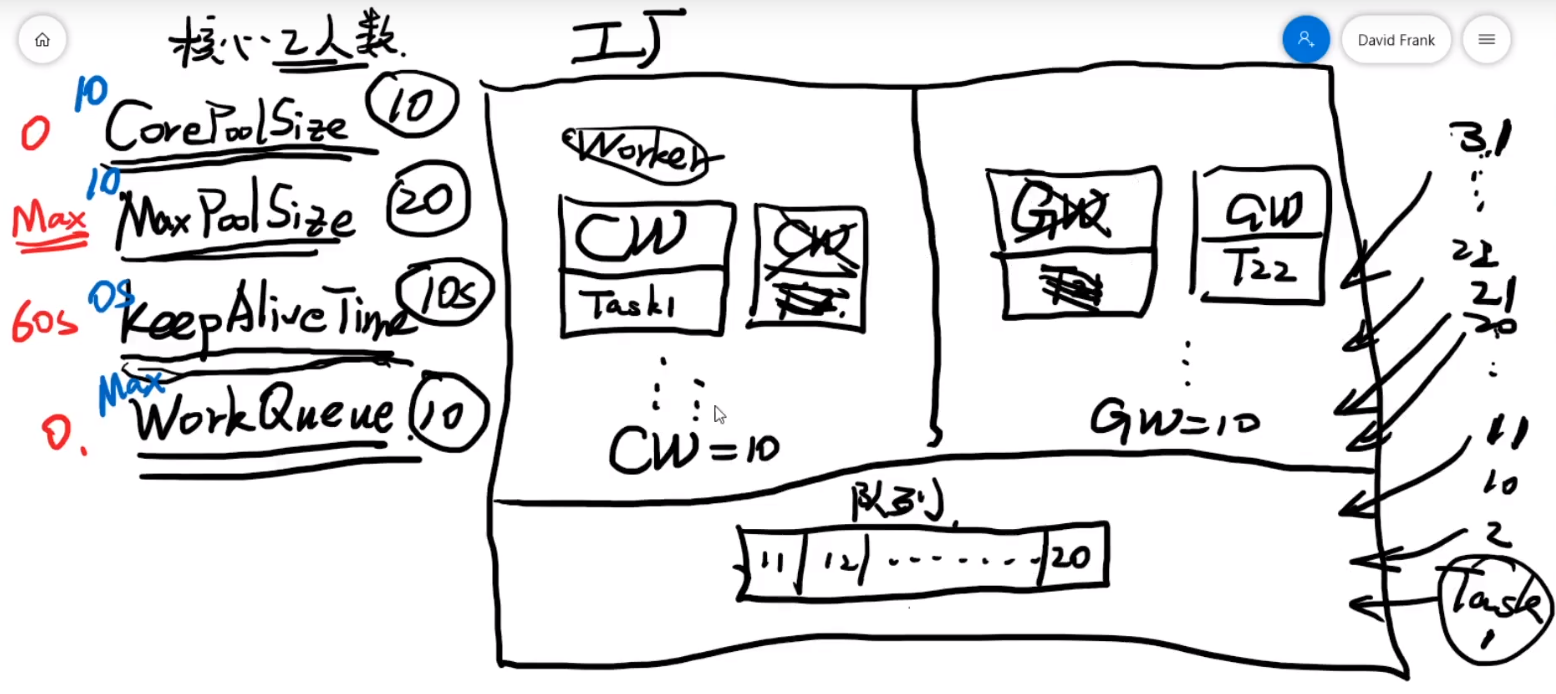 核心工人数.
工厂
David Frank
10
0 CorePoolSize 10
10
Max MaxPoolSize 20
0s
60s KeepAliveTime 10s
Max
0. WorkQueue 10
Worker
CW
Task1
CW
GW
GW
T22
CW=10
GW=10
队列
11 12 ....... 20
31
22
21
20
11
10
2
Task
1